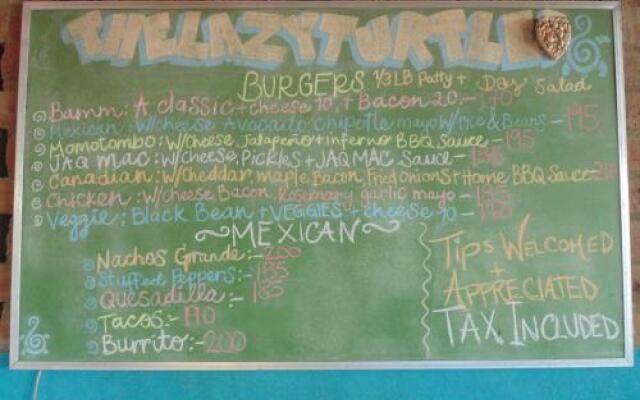 THE LAZY TURTLE
BURGERS 1/3 LB Patty + Day Salad
Bamm: A classic + cheese 10, + Bacon 20 - 170
Mexican: W/cheese Avocado Chipotle mayo W/Rice & Beans - 195
Momotombo: W/Cheese, Jalapeño + inferno BBQ Sauce - 195
JAQ Mac: W/cheese, Pickles + JAQ MAC Sauce -
Canadian: W/Cheddar, maple Bacon, Fried Onions + Home BBQ Sauce -
Chicken: W/cheese Bacon, Rosemary garlic mayo - 185
Veggie: Black Bean + VEGGIES + cheese 10 -
~MEXICAN~
Nachos Grande: - 200
Stuffed Peppers: - 185
Quesadilla: - 185
Tacos: - 170
Burrito: - 200
Tips Welcomed
+
Appreciated
Tax Included